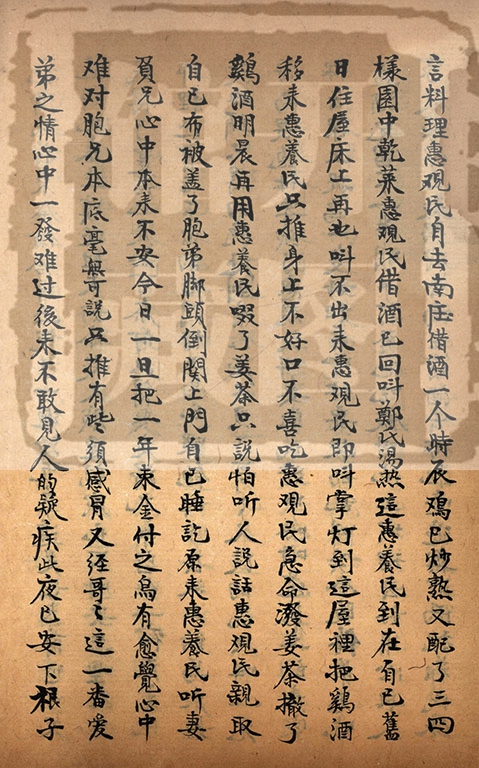 言料理惠观民自去南庄借酒一个时辰鸡已炒熟又配了三四
樣園中乾菜惠观民借酒已回叫鄭氏湯熱這惠養民到在自已舊
日住屋床上再也叫不出来惠观民即叫掌灯到這屋裡把鷄酒
移来惠養民只推身上不好口不喜吃惠观民急命潑姜茶撤了
鷄酒明晨再用惠養民啜了姜茶只說怕听人說話惠观民親取
自已布被盖了胞弟脚頭倒関上門自已睡訖原来惠養民听妻
負兄心中本来不安今日一旦把一年束金付之烏有愈覺心中
难对胞兄本底毫無可說只推有些須感冒又经哥〻這一番爱
弟之情心中一發难过後来不敢見人的疑疾此夜已安下根子